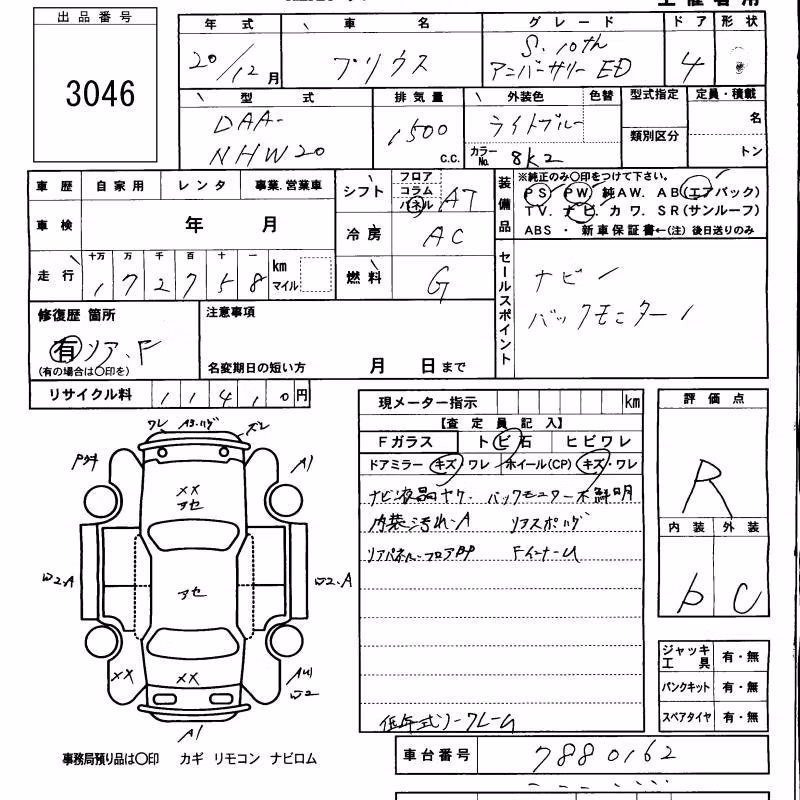 出品番号
3046
年式 車名 グレード ドア 形状
20/12月 プリウス S.10th アニバーサリーED 4
型式 排気量 外装色 色替 型式指定 定員・積載
DAA-NHW20 1500 C.C. ライトブルー カラーNo. 8K2 類別区分 名 トン
車歴 自家用 レンタ 事業.営業車
車検 年 月
走行 十万 万 千 百 十 一 km マイル
1 7 2 7 5 8
シフト フロア コラム パネル AT
冷房 AC
燃料 G
装備品
※純正のみ〇印をつけて下さい。
PS PW 純AW. AB(エアバック)
TV. ナビ. カワ. SR(サンルーフ)
ABS ・ 新車保証書←(注) 後日送りのみ
セールスポイント
ナビ
バックモニター
修復歴 箇所
有 リア.F
(有の場合は〇印を)
注意事項
名変期日の短い方 月 日まで
リサイクル料 1 1 4 1 0 円
現メーター指示 km
【査定員記入】
Fガラス トビ石 ヒビワレ
ドアミラー キズ・ワレ ホイール(CP) キズ・ワレ
ナビ液晶ヤケ. バックモニター不鮮明
内装汚れ-A リアスポハゲ
リアパネル・フロアPP Fインナーム
低年式リークレーム
評価点
R
内装 外装
b C
ワレ ズレ
A1
XX
アセ
W2.A アセ W2.A
XX XX
W2
A1
ジャッキ工具 有・無
パンクキット 有・無
スペアタイヤ 有・無
事務局預り品は〇印 カギ リモコン ナビロム
車台番号 7880162